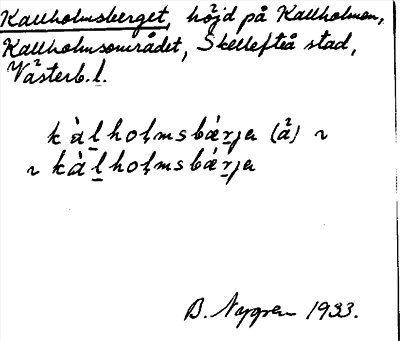 Kallholmsberget, höjd på Kallholmen,
Kallholmsområdet, Skellefteå stad,
Västerb. l.
kàlholmsbárja (ä²) ~
~ kàlholmsbárja
B. Nygren 1933.